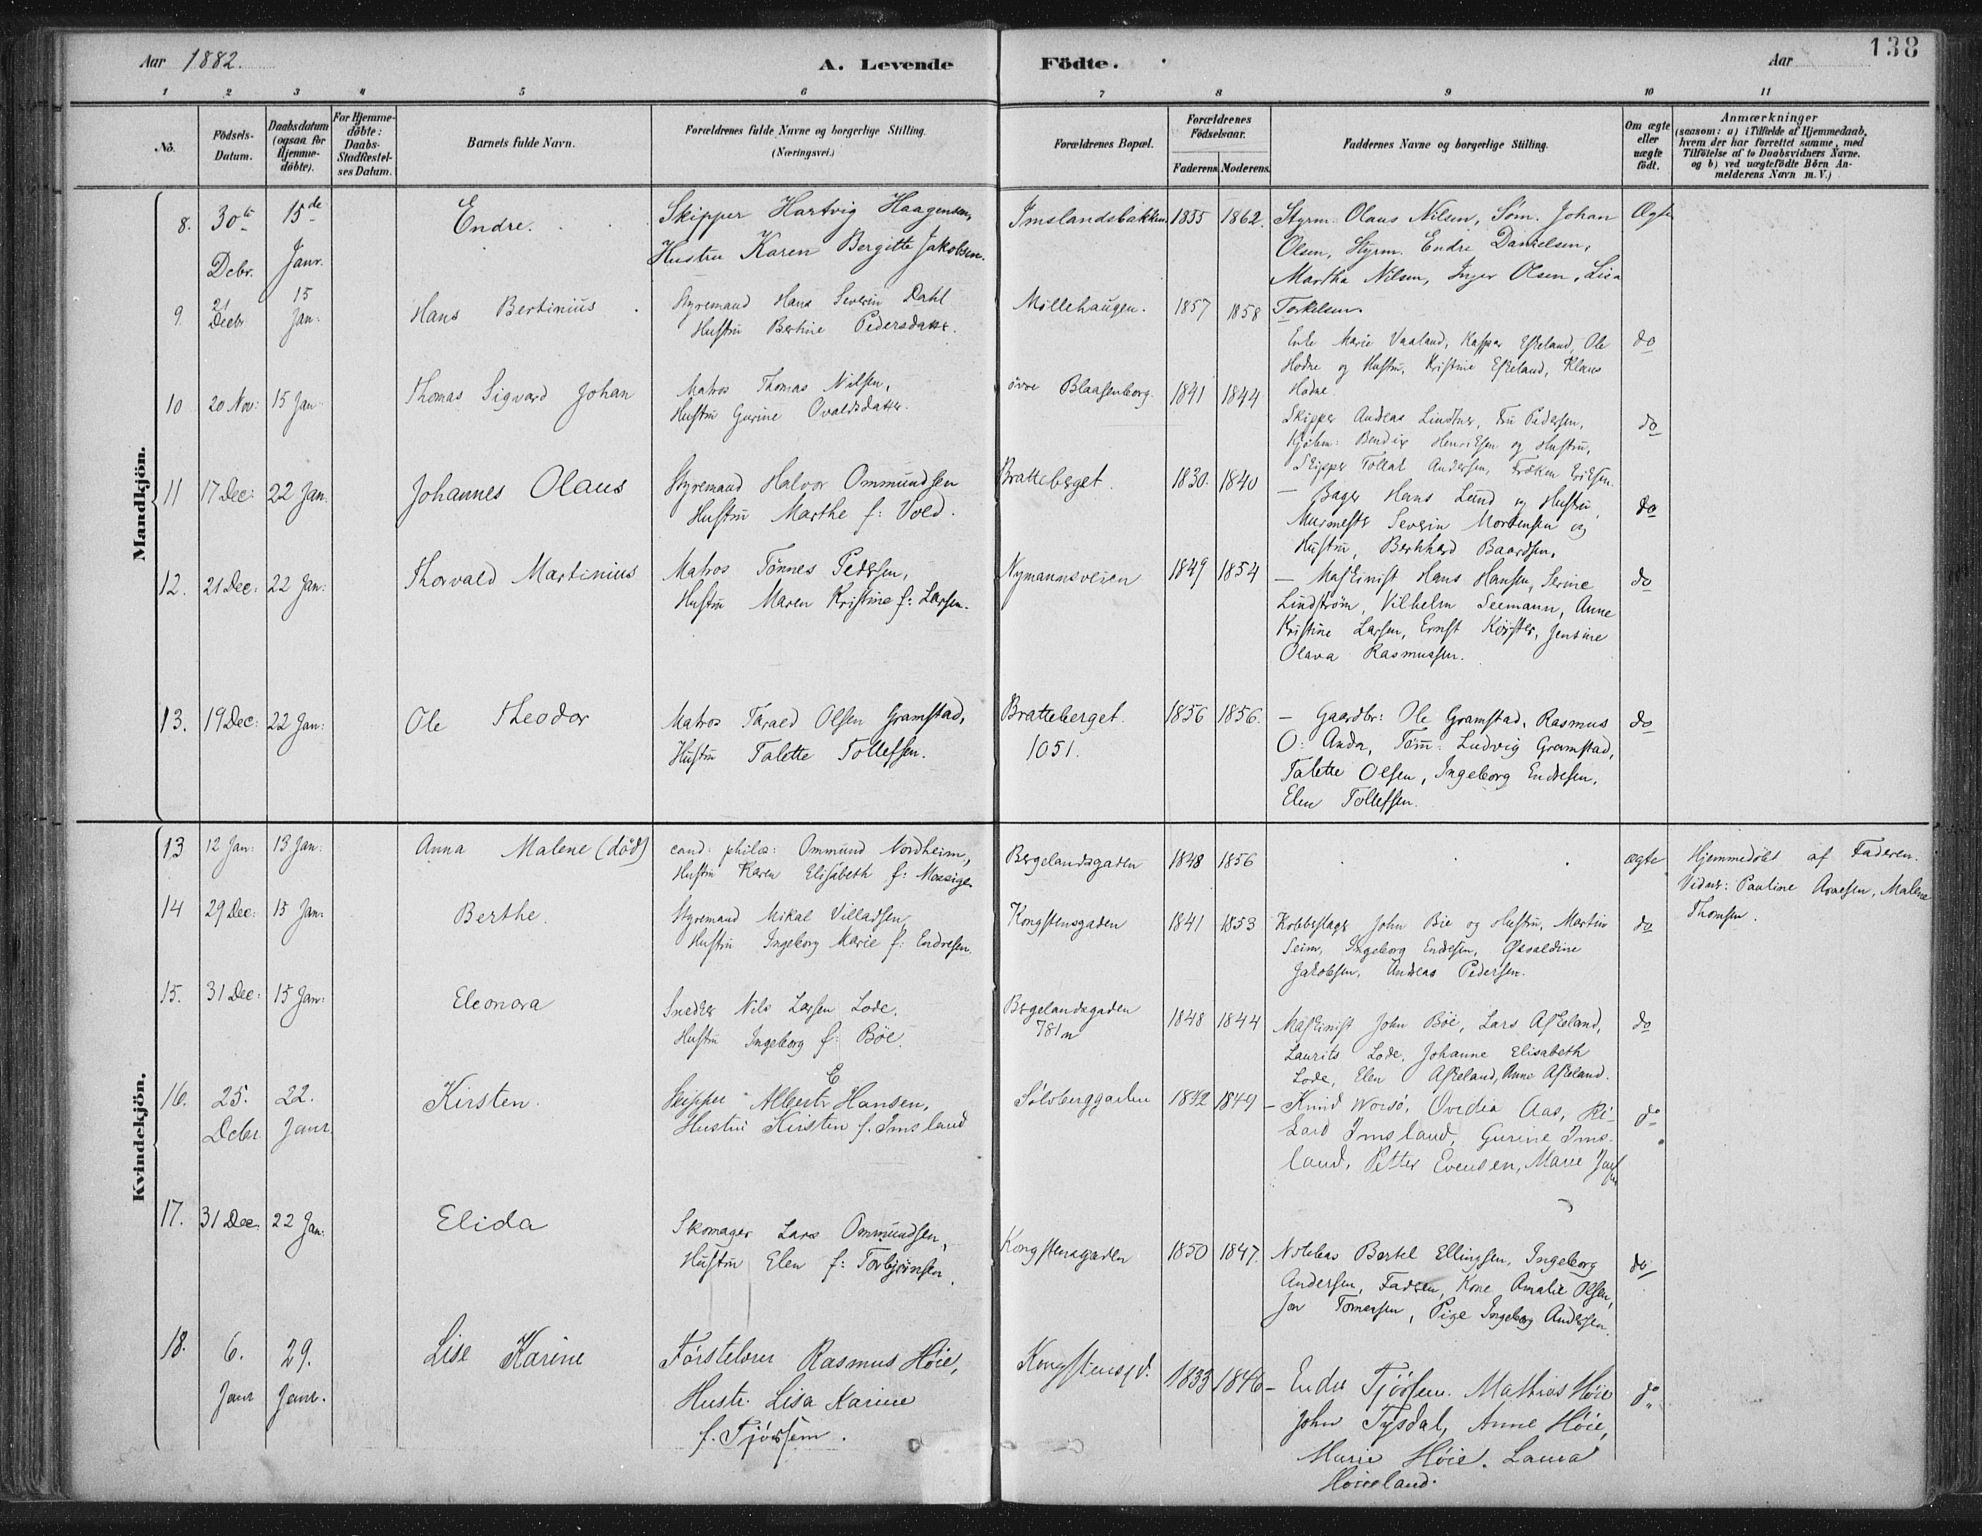 Aar 1882.
A. Levende
Födte.
Aar
138
1 2 3 4 5 6 7 8 9 10 11
No.
Födsels-
Datum.
Daabsdatum
(ogsaa for
Hjemme-
döbte).
For Hjemme-
döbte:
Daabs-
Stadfæstel-
ses Datum.
Barnets fulde Navn.
Forældrenes fulde Navne og borgerlige Stilling.
(Næringsvei.)
Forældrenes Bopæl.
Forældrenes
Födselsaar.
Faderens. Moderens.
Faddernes Navne og borgerlige Stilling.
Om ægte
eller
uægte
födt.
Anmærkninger
(saasom: a) i Tilfælde af Hjemmedaab,
hvem der har forrettet samme, med
Tilföielse af to Daabsvidners Navne,
og b) ved uægtefödte Börn An-
melderens Navn m. V.)
Mandkjön.
8. 30te Debr. 15de Janr. Endre.
Skipper Hartvig Haagensen,
Hustru Karen Bergitte Jakobsen.
Imslandsbakken 1855 1862.
Styrm. Olaus Nilsen, Søm. Johan
Olsen, Styrm. Endre Danielsen,
Martha Nilsen, Inger Olsen, Lisa
Torkelsen.
Ægte
9. 21 Decbr 15 Jan. Hans Bertinius
Styremand Hans Severin Dahl
Hustru Bertine Pedersdatter.
Møllehaugen. 1857 1858
Enke Marie Vaaland, Kasper Eskeland, Ole
Hodne og Hustru, Kristine Eskeland, Klaus
Hodne.
do
10 20 Nov: 15 Jan Thomas Sigvard Johan
Matros Thomas Nilsen,
Hustru Gurine Ovaldsdatter.
øvre Blaasenborg. 1841 1844
Skipper Andreas Lindtner, Fru Pedersen,
Kjøbm: Bendix Henriksen og Hustru,
Skipper Tollak Andersen, Frøken Eriksen.
do
11 17 Dec: 22 Jan. Johannes Olaus
Styremand Halvor Ommundsen
Hustru Marthe f: Vold.
Bratteberget. 1830. 1840
– Bager Hans Lund og Hustru,
Murmester Severin Mortensen og
Hustru, Bernhard Baardsen.
do
12. 21 Dec: 22 Jan: Thorvald Martinius
Matros Tønnes Pedersen,
Hustru Maren Kristine f: Larsen.
Nymannsveien 1849 1854
– Maskinist Hans Hansen, Serine
Lindstrøm, Vilhelm Seemann, Anne
Kristine Larsen, Ernst Körster, Jensine
Olava Rasmussen.
do
13. 19 Dec: 22 Jan: Ole Theodor
Matros Tarald Olsen Gramstad,
Hustru Talette Tollefsen.
Bratteberget.
1051.
1856 1856.
– Gaardbr: Ole Gramstad, Rasmus
O: Anda, Tøm: Ludvig Gramstad,
Talette Olsen, Ingeborg Endresen,
Elen Tollefsen.
do
Kvindekjön.
13 12 Jan: 13 Jan: Anna Malene (død)
cand: philos: Ommund Nordheim,
Hustru Karen Elisabeth f: Mossige.
Bergelandsgaden 1848 1856
ægte
Hjemmedøbt af Faderen.
Vidner: Pauline Aanesen, Malene
Thomsen.
14 29 Dec: 15 Jan: Berthe.
Styremand Mikal Villadsen,
Hustru Ingeborg Marie f: Endresen.
Kongstensgaden 1841 1853
Kobberslager John Bie og Hustru, Martin
Seim, Ingeborg Endresen, Osvaldine
Jakobsen, Andreas Pedersen.
do
15. 31 Dec: 15 Jan: Eleonora
Snedker Nils Larsen Lode.
Hustru Ingeborg f: Bøe.
Bergelandsgaden
781 m
1848 1844
Maskinist John Bøe, Lars Askeland,
Laurits Lode, Johanne Elisabeth
Lode, Elen Askeland, Anne Askeland.
do
16. 25. Debr 22. Janr. Kirsten.
Skipper Albert E Hansen,
Hustru Kirsten f. Imsland
Sølvberggaden 1842 1849
– Knud Worsö, Ovidia Aas, Ri-
kard Imsland, Gurine Ims-
land, Petter Evensen, Marie
do
17. 31 Dec. 22 Jan: Elida
Skomager Lars Ommundsen,
Hustru Elen f: Torbjørnsen.
Kongstensgaden 1850 1847.
Notebas Bertel Ellingsen, Ingeborg
Andersen, Kone Amalie Olsen,
Jon Tomersen, Pige Ingeborg Andersen.
do
18. 6. Janr 29. Janr. Lise Karine
Førstelærer Rasmus Høie,
Hustr. Lisa Karine
f. Tjørssem.
Kongstensgd. 1833 1846
– Endre Tjørssem. Mathias Høie
John Tysdal, Anne Høie,
Marie Høie. Laura
Høieland.
do